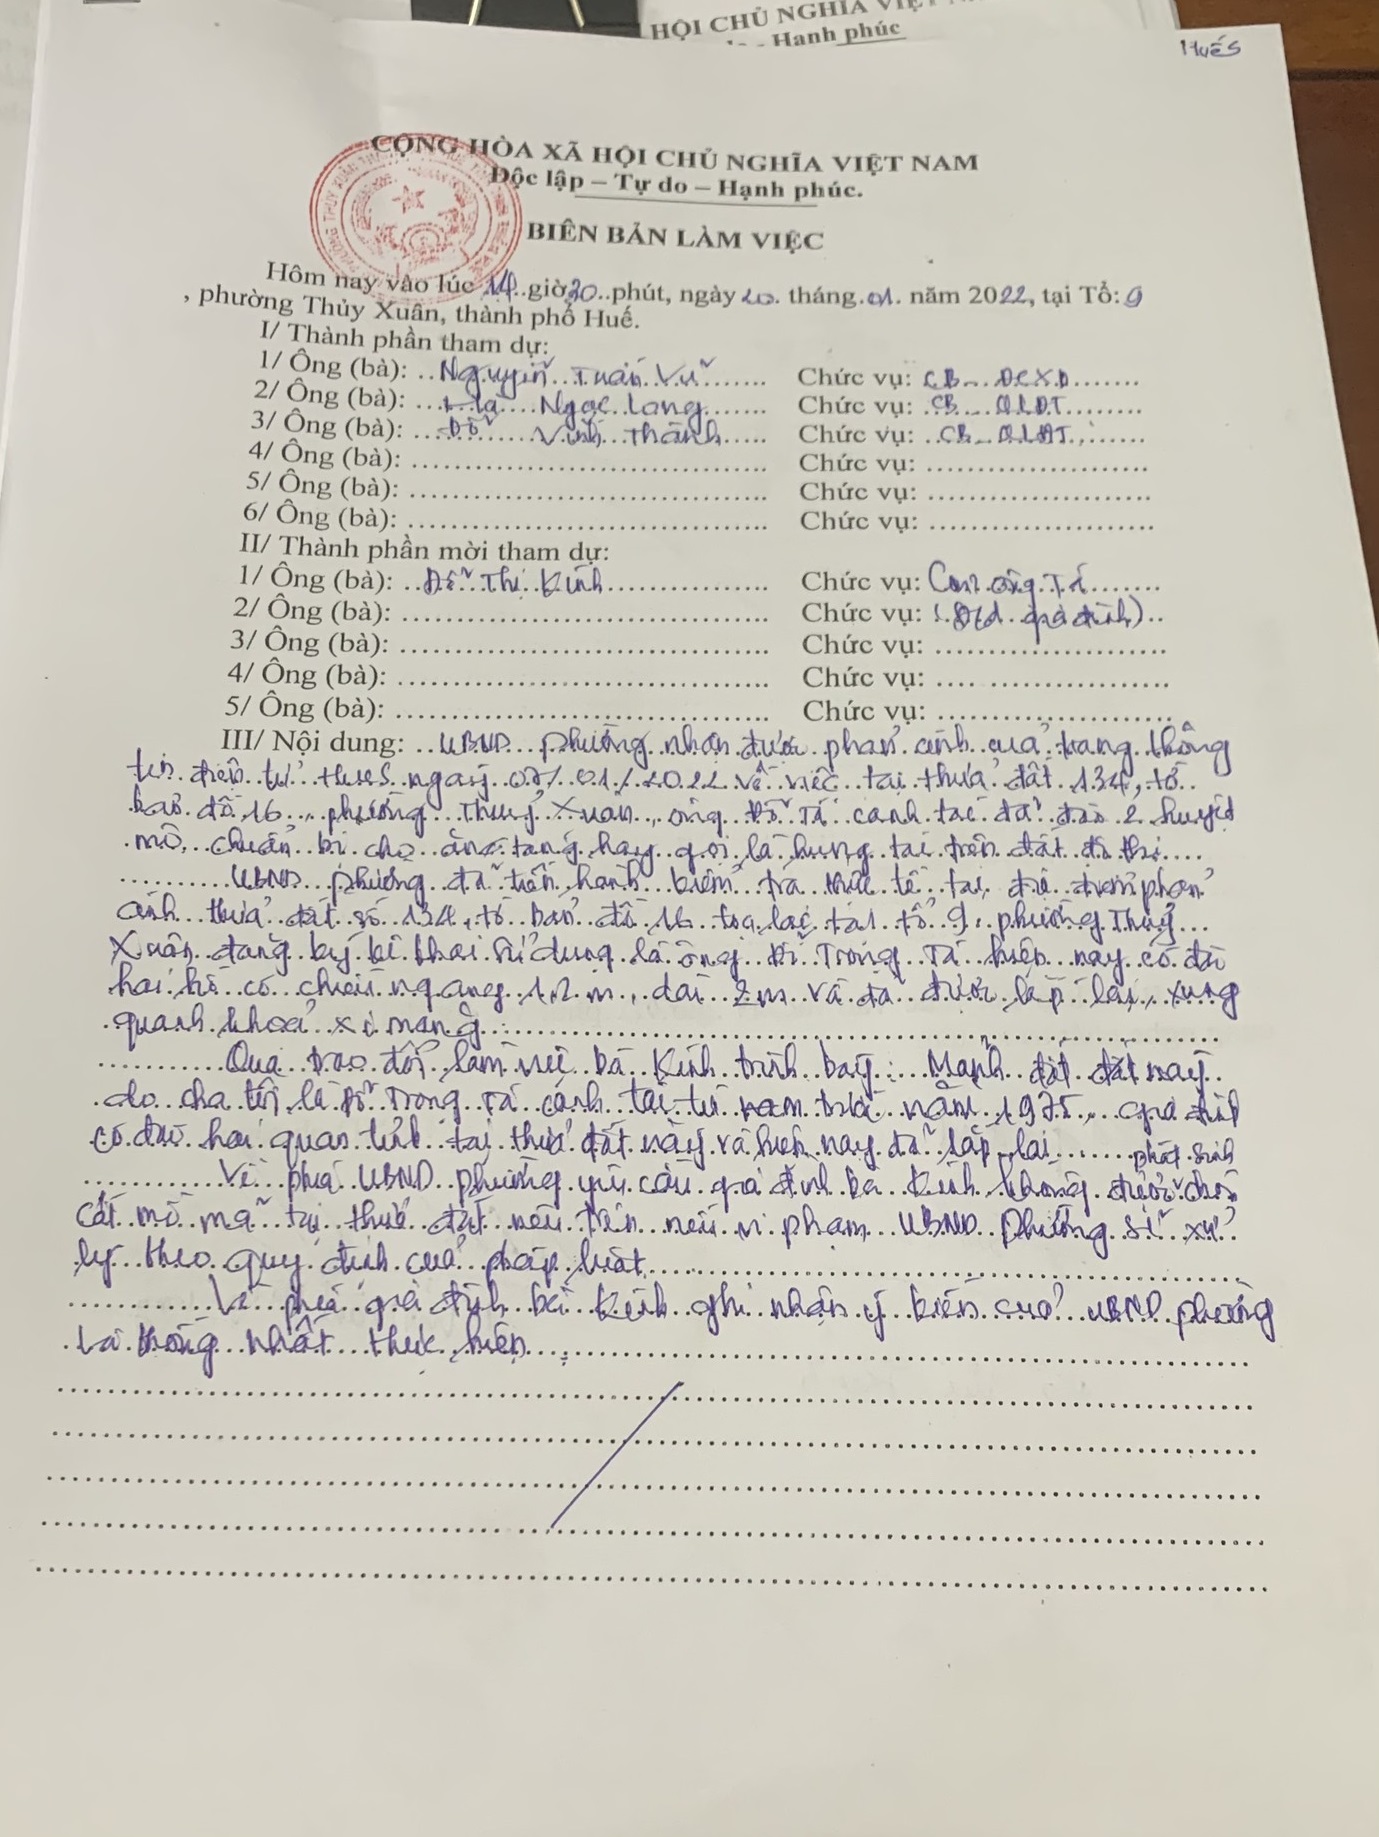 HỘI CHỦ NGHĨA VIỆT
Hạnh phúc
Huế S
CỘNG HÒA XÃ HỘI CHỦ NGHĨA VIỆT NAM
Độc lập – Tự do – Hạnh phúc.
BIÊN BẢN LÀM VIỆC
Hôm nay vào lúc 14 giờ 30 phút, ngày 20 tháng 01 năm 2022, tại Tổ: 9
, phường Thủy Xuân, thành phố Huế.
I/ Thành phần tham dự:
1/ Ông (bà): Nguyễn Tuấn Vũ Chức vụ: CB ĐCXD
2/ Ông (bà): Hà Ngọc Long Chức vụ: CB QLĐT
3/ Ông (bà): Đỗ Vinh Thành Chức vụ: CB QLĐT
4/ Ông (bà): Chức vụ:
5/ Ông (bà): Chức vụ:
6/ Ông (bà): Chức vụ:
II/ Thành phần mời tham dự:
1/ Ông (bà): Đỗ Thị Kính Chức vụ: Con ông Tá
2/ Ông (bà): Chức vụ: (Đ/d gia đình)
3/ Ông (bà): Chức vụ:
4/ Ông (bà): Chức vụ:
5/ Ông (bà): Chức vụ:
III/ Nội dung: UBND phường nhận được phản ánh của trang thông
tin điện tử HueS ngày 07/01/2022 về việc tại thửa đất 134, tờ
bản đồ 16, phường Thuỷ Xuân, ông Đỗ Tá canh tác đã đào 2 huyệt
mộ, chuẩn bị cho an táng hay gọi là hung táng trên đất đô thị
UBND phường đã tiến hành kiểm tra thực tế tại địa điểm phản
ánh thửa đất số 134, tờ bản đồ 16 toạ lạc tại tổ 9, phường Thuỷ
Xuân đăng ký kê khai sử dụng là ông Đỗ Trọng Tá hiện nay có đào
hai hố có chiều ngang 1,2 m, dài 2m và đã được lấp lại, xung
quanh khoả xi măng.
Qua trao đổi làm việc bà Kính trình bày: Mảnh đất đất này
do cha tên là Đỗ Trọng Tá canh tác từ trước năm 1975, gia đình
có đào hai quan tại thửa đất này và hiện nay đã lấp lại
phát sinh
Về phía UBND phường yêu cầu gia đình bà Kính không được chôn
cất mồ mã tại thửa đất nêu trên nếu vi phạm UBND phường sẽ xử
lý theo quy định của pháp luật.
Về phía gia đình bà Kính ghi nhận ý kiến của UBND phường
và thống nhất thực hiện.